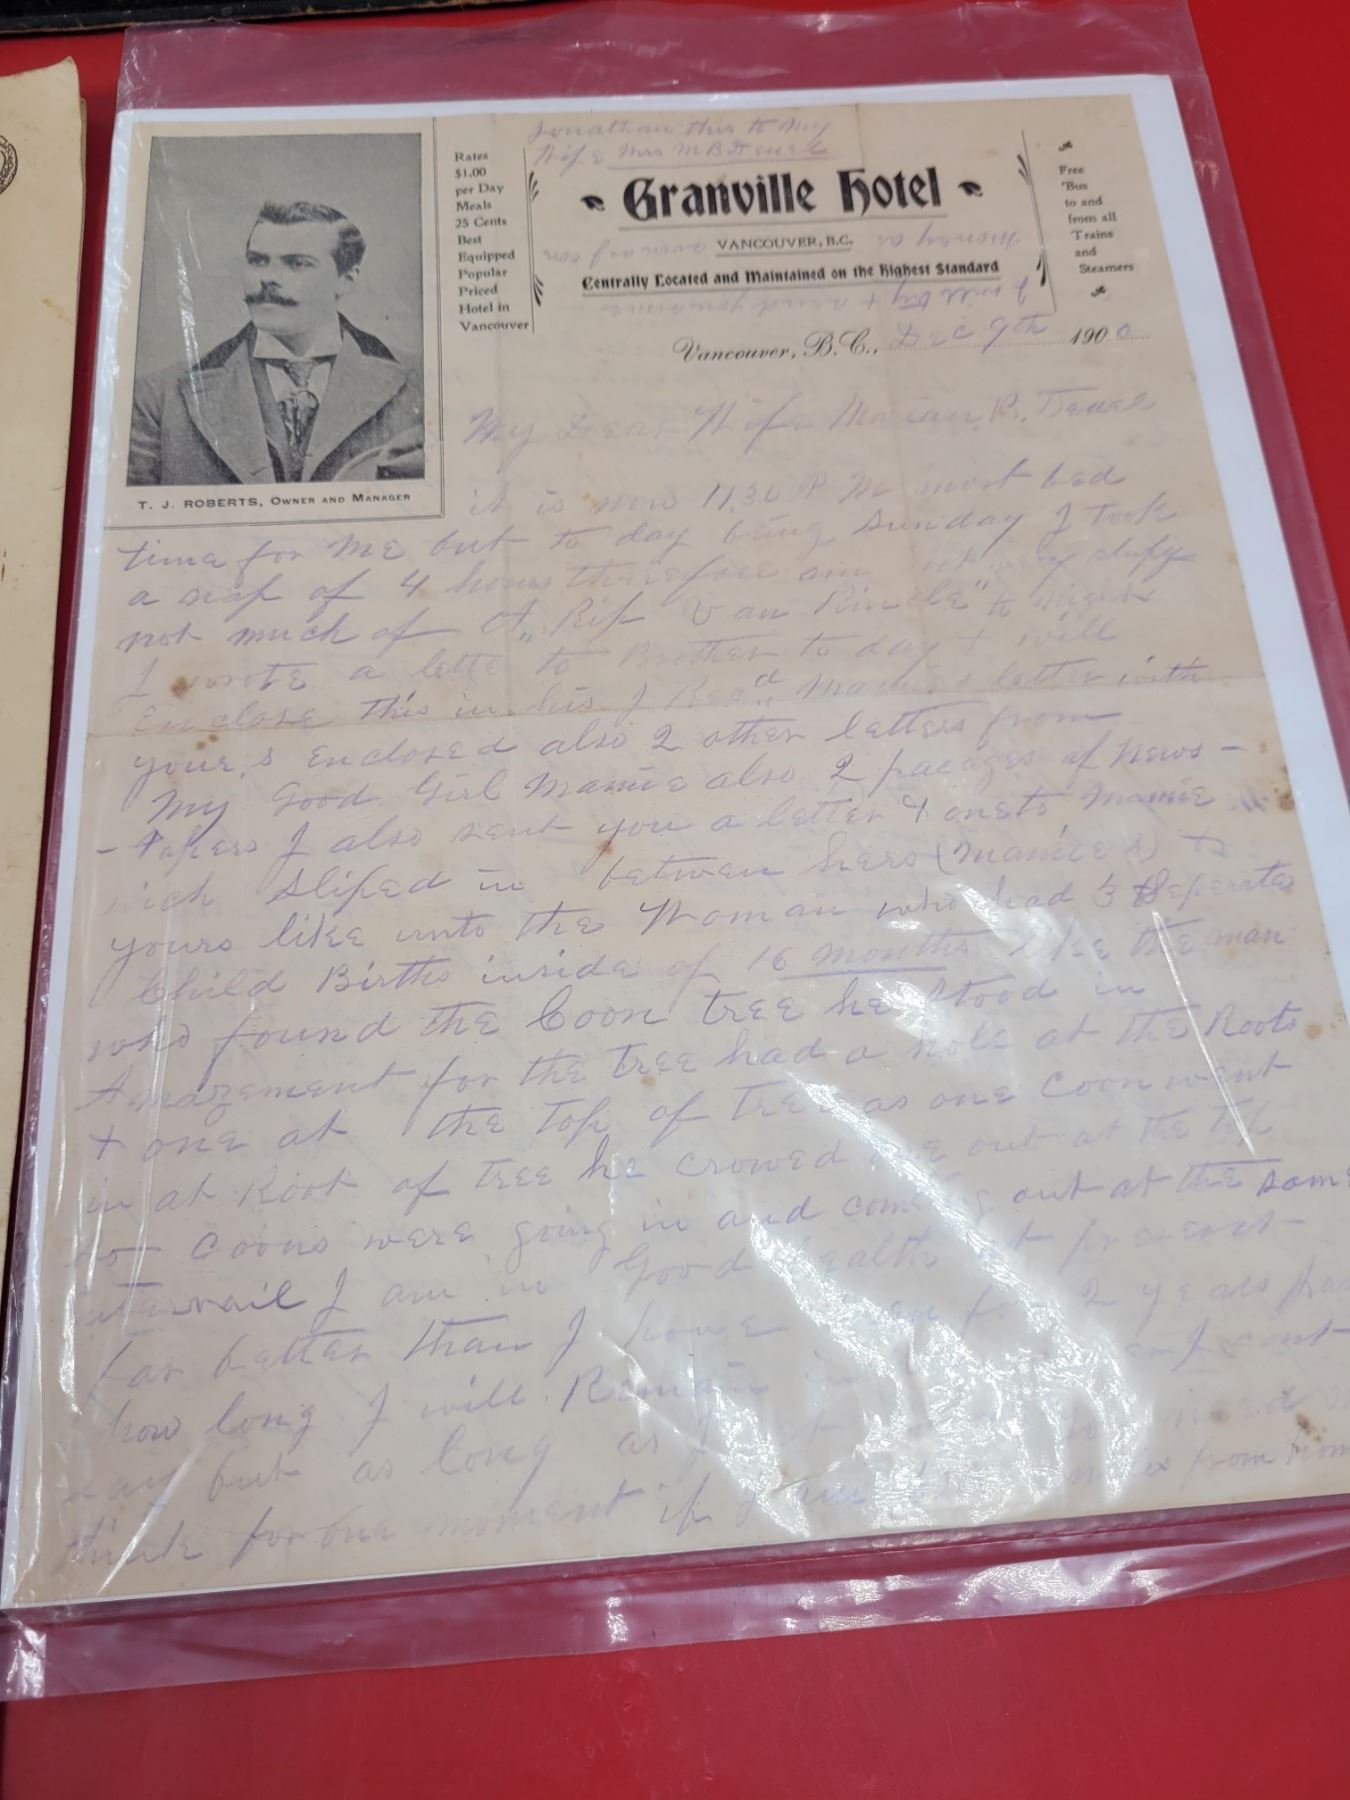 Jonathan this to My
Wife Mrs M B Deuel
Rates
$1.00
per Day
Meals
25 Cents
Best
Equipped
Popular
Priced
Hotel in
Vancouver
Granville Hotel
VANCOUVER, B.C.
Centrally Located and Maintained on the Highest Standard
Free
'Bus
to and
from all
Trains
and
Steamers
I will try & send you some
money as soon as I can
Vancouver, B.C., Dec 9th 1900
T. J. ROBERTS, OWNER AND MANAGER
My Dear Wife Marian B. Deuel
it is now 11.30 P M most bed
time for Me but to day being Sunday I took
a nap of 4 hours therefore am not very slepy
not much of A "Rip Van Rincle" to night
I wrote a letter to Brother to day & will
Enclose this in his I Recd Mamies letter with
your,s Enclosed also 2 other letters from
My Good Girl Mamie also 2 pacages of News-
-Papers I also sent you a letter & one to Mamie
sliped in between hers (Mamie s) &
yours like unto the Woman who had 3 Seperate
Child Births inside of 16 months like the man
who found the Coon tree he stood in
Amazement for the tree had a hole at the Roots
& one at the top of tree as one Coon went
in at Root of tree he crowed one out at the top
so Coons were going in and coming out at the same
I am in Good health at present
far better than I have been for 2 years
how long I will Remain in I cant
say but as long as I
think for one moment if I am miles from